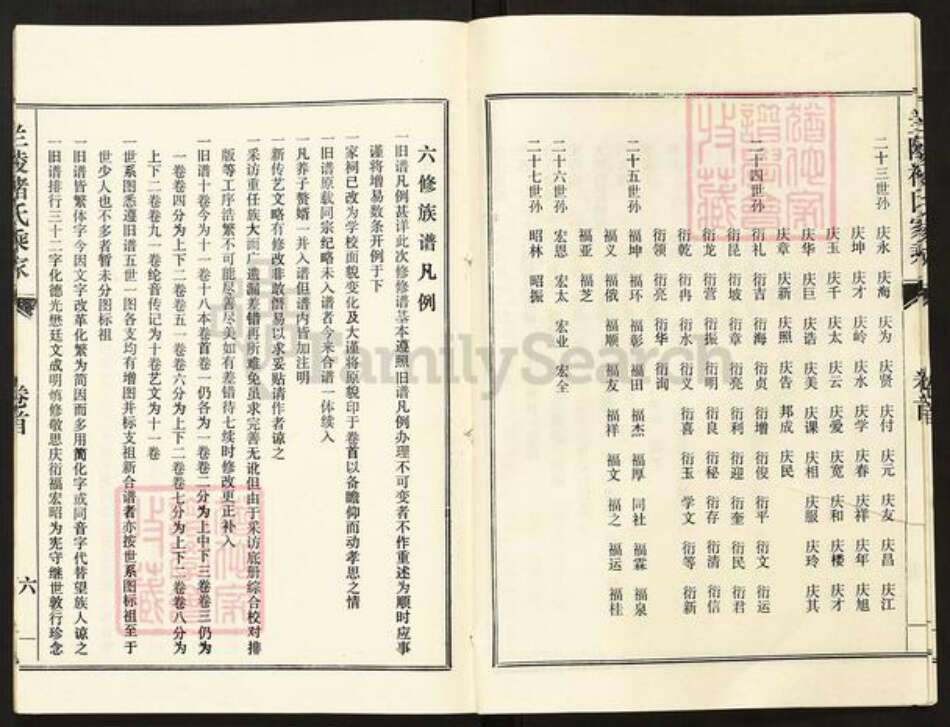 二十三世孙
庆永 庆海 庆为 庆贤 庆付 庆元 庆友 庆昌 庆江
庆坤 庆才 庆岭 庆水 庆学 庆春 庆祥 庆年 庆旭
庆玉 庆千 庆太 庆云 庆爱 庆宽 庆和 庆楼 庆才
庆华 庆巨 庆诰 庆美 庆课 庆相 庆服 庆玲 庆其
庆章 庆新 庆照 庆告 邦成 庆民
二十四世孙
衍礼 衍吉 衍海 衍贞 衍增 衍俊 衍平 衍文 衍运
衍昆 衍坡 衍章 衍亮 衍利 衍迎 衍奎 衍民 衍君
衍龙 衍营 衍振 衍明 衍良 衍秘 衍存 衍清 衍信
衍乾 衍冉 衍水 衍义 衍喜 衍玉 学文 衍等 衍新
衍领 衍亮 衍华 衍询
二十五世孙
福坤 福环 福彰 福田 福杰 福厚 同社 福霖 福泉
福义 福俄 福顺 福友 福祥 福文 福之 福运 福桂
福亚 福芝
二十六世孙
宏恩 宏太 宏业 宏全
二十七世孙
昭林 昭振
卷首
六修族谱凡例
一旧谱凡例甚详此次修修谱基本遵照旧谱凡例办理不可变者不作重述为顺时应事
谨将增易数条开例于下
一家祠已改为学校面貌变化及大谨将原貌印于卷首以备瞻仰而动孝思之情
一旧谱原载同宗纪略未入谱者今来合谱一体续入
一凡养子赘婿一并入谱但谱内皆加注明
一新传艺文略有修改非敢僭易以求妥贴请作者谅之
一采访重任族大而广遗漏差错再所难免虽求完善无讹但由于采访底册综合校对排
版等工序浩繁不可能尽善尽美如有差错待七续时修改更正补入
一旧谱十卷今为十一卷十八本卷首卷一仍各为一卷卷二分为上中下三卷卷三仍为
一卷卷四分为上下二卷卷五一卷卷六分为上下二卷卷七分为上下二卷卷八分为
上下二卷卷九一卷纶音传记为十卷艺文为十一卷
一世系图悉遵旧谱五世一图各支均有增图并标支祖新合谱者亦按世系图标祖至于
世少人少也不多者暂未分图标祖
一旧谱皆繁体字今因文字改革化繁为简因而多用简化字或同音字代替望族人谅之
一旧谱排行三十二字化德光懋廷文成明慎修敬思庆衍福宏昭为宪守继世敦行珍念
兰陵褚氏家乘
卷首
六
FamilySearch